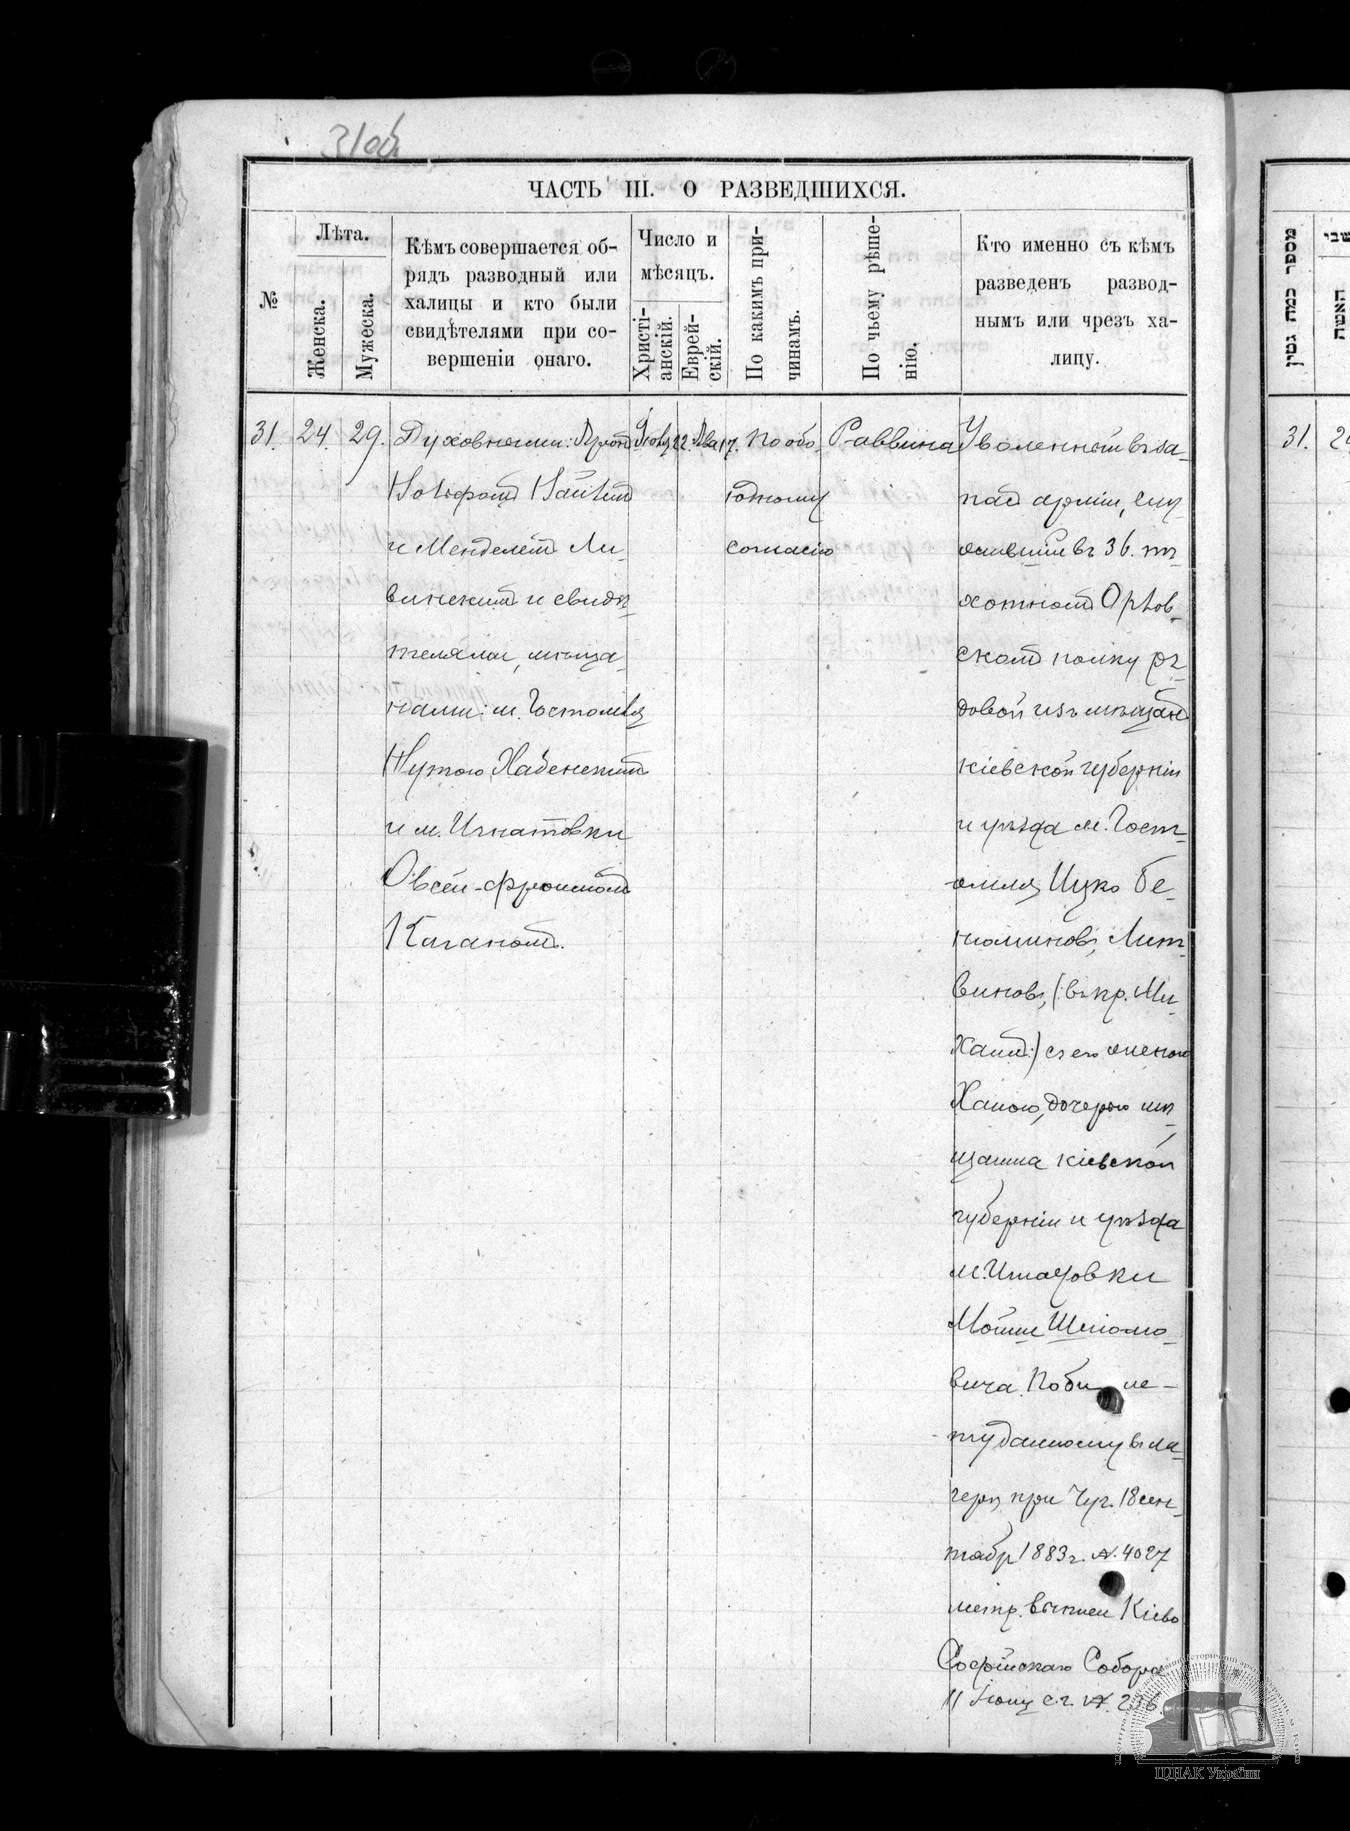 31об
ЧАСТЬ III. О РАЗВЕДШИХСЯ.
№
Лѣта.
Женска.
Мужеска.
Кѣмъ совершается об-
рядъ разводный или
халицы и кто были
свидѣтелями при со-
вершеніи онаго.
Число и
мѣсяцъ.
Христі-
анскій.
Еврей-
скій.
По какимъ при-
чинамъ.
По чьему рѣше-
нію.
Кто именно съ кѣмъ
разведенъ развод-
нымъ или чрезъ ха-
лицу.
31.
24.
29.
Духовными:
и Менделемъ Ли-
винскимъ и свидѣ-
телями, мѣща-
нами: м. Гостомля
Нутою Хабенскимъ
и м. Игнатовки
Овсей-Фроимомъ
Каганомъ.
22.
17.
по обо-
юдному
согласію
Раввина
Уволенный въ за-
пасъ арміи, слу-
жившій въ 36. пѣ-
хотномъ Орлов-
скомъ полку ря-
довой изъ мѣщанъ
кіевской губерніи
и уѣзда м. Гост-
омля Ицко Бе-
ніоминовъ Лит-
виновъ, (: въ кр. Ми-
хаилъ:) съ его женою
Ханою, дочерью мѣ-
щанина кіевской
губерніи и уѣзда
м. Игнатовки
Мошки Шліомо-
вича
выданному въ ла-
герѣ при Чуг. 18 сен-
табр 1883 г. №. 4027
метр. выписи Кіево
Софійскаго Собора
11 Іюня с. г. № 236.
מספר כמה גטין
האשה
31.
ЦДІАК України